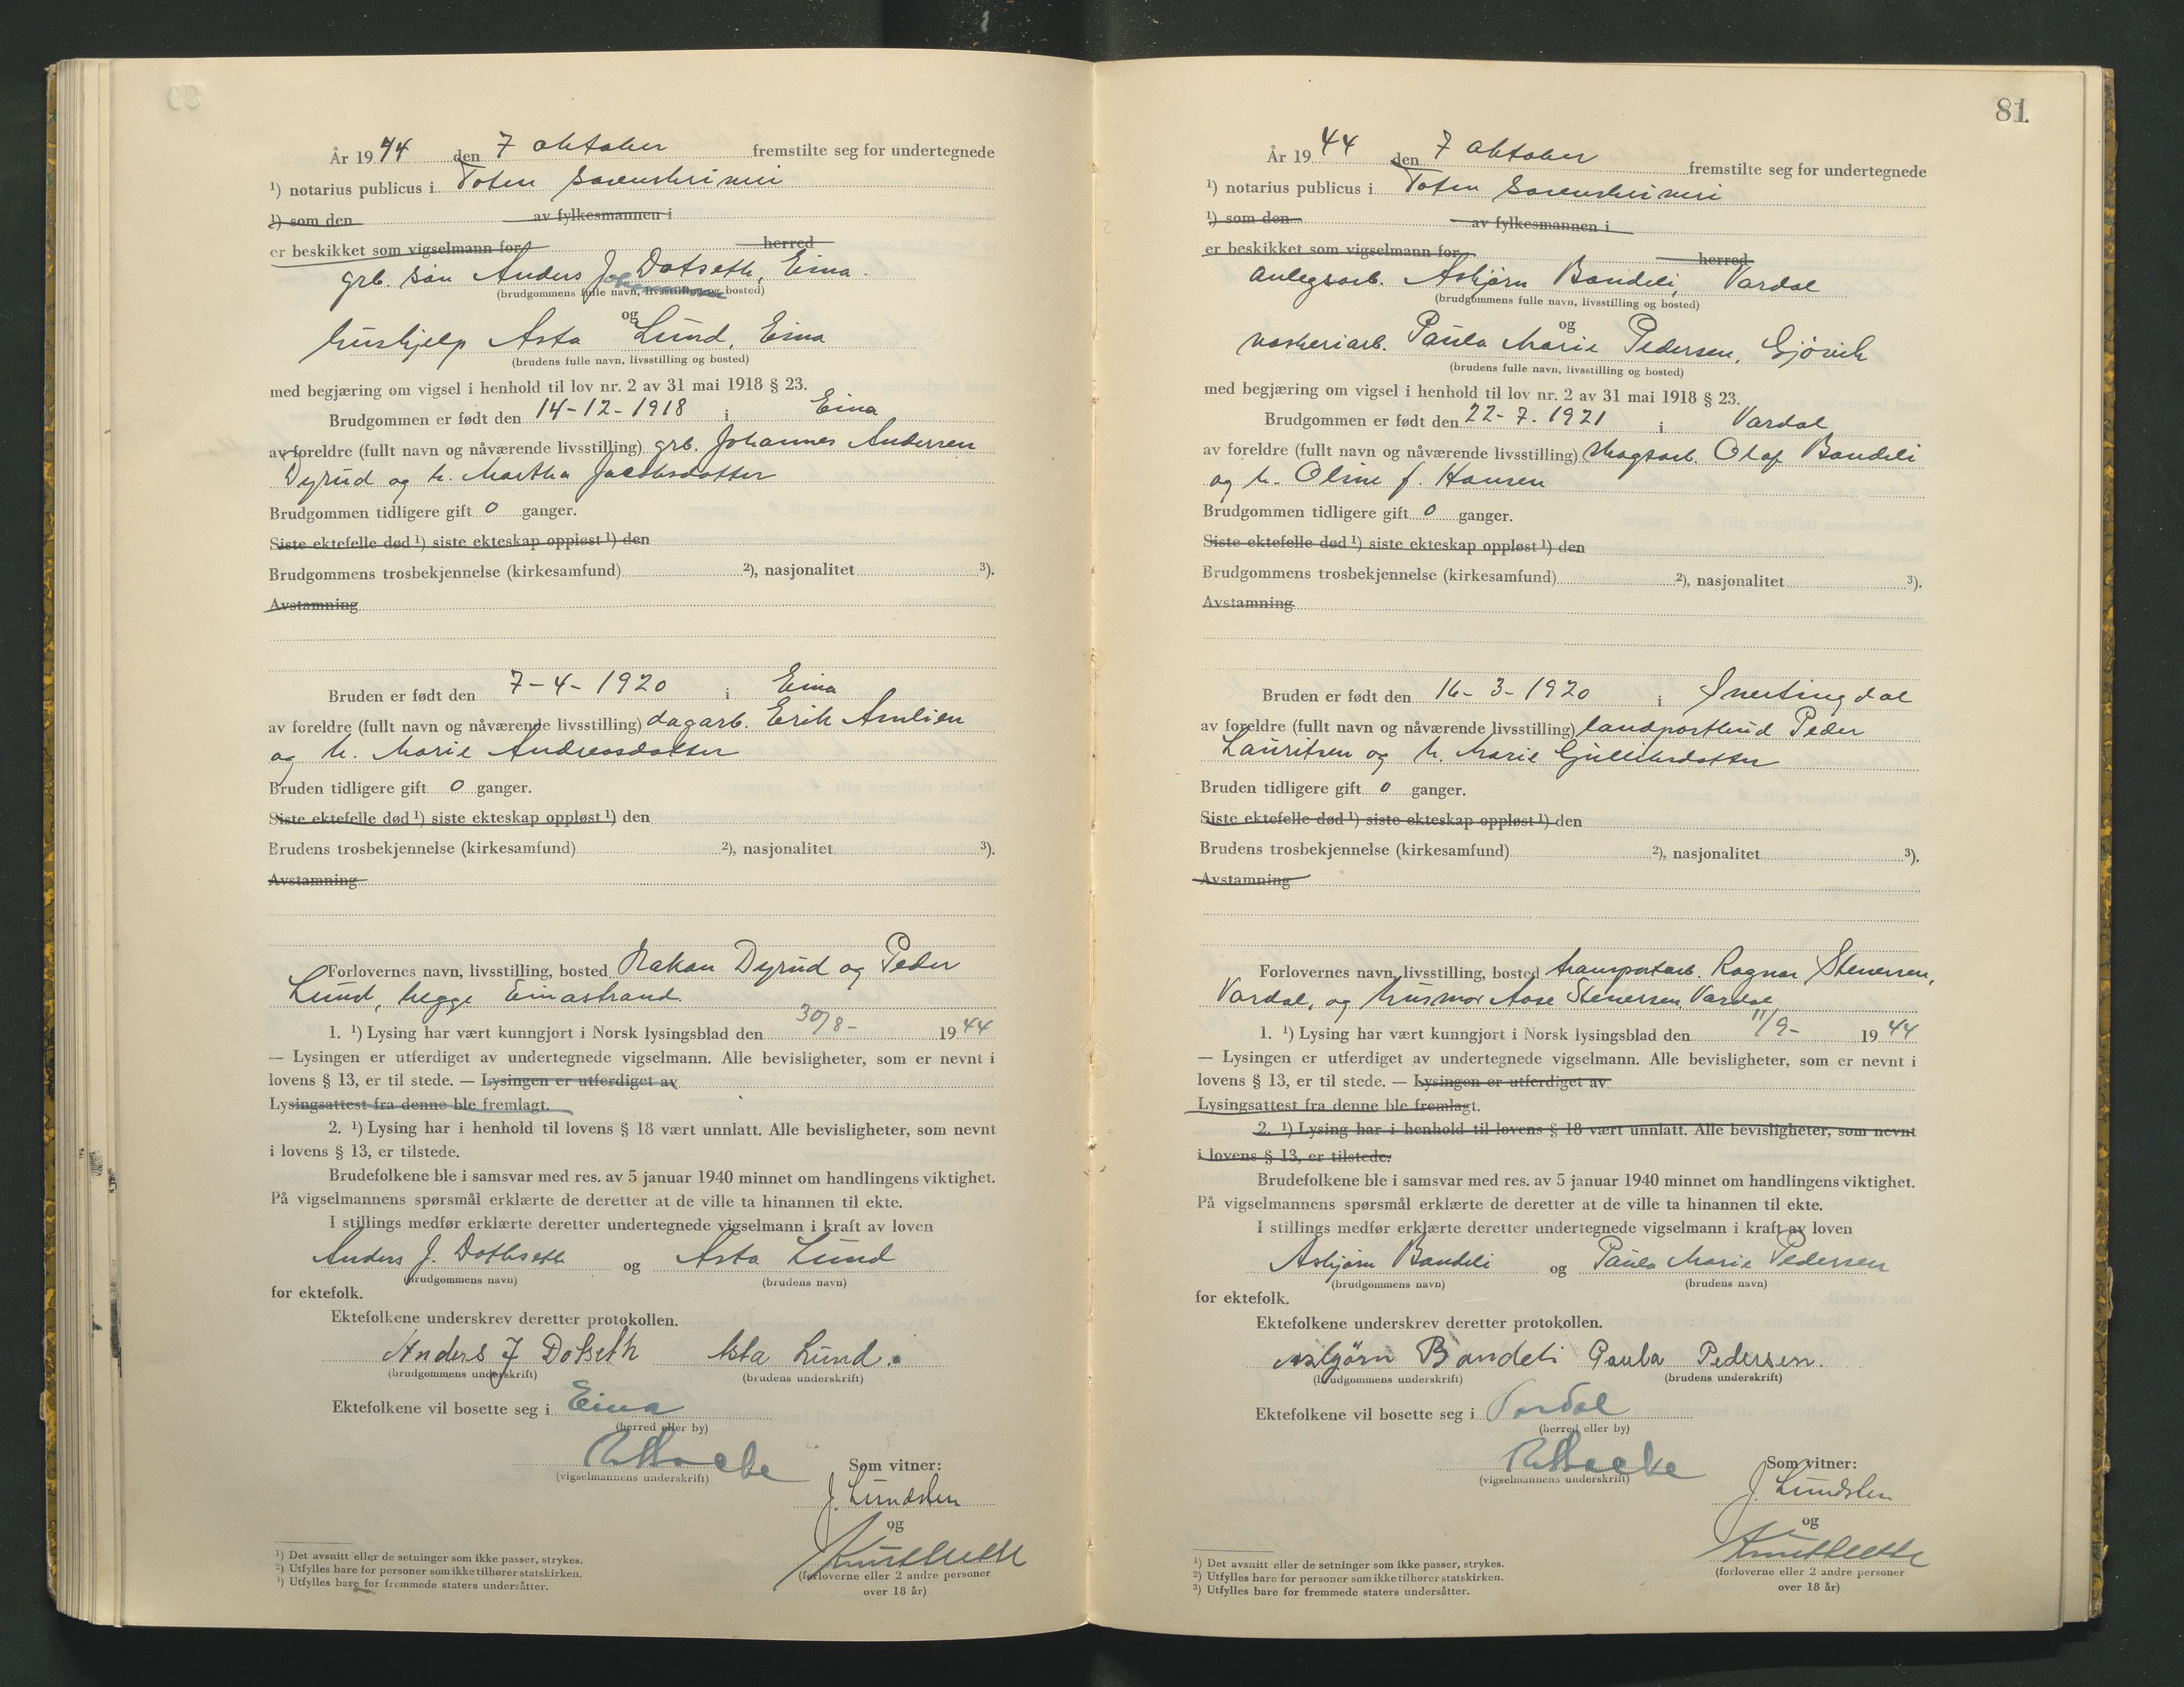 År 1944 den 7 oktober fremstilte seg for undertegnede
¹) notarius publicus i Toten sorenskriveri
¹) som den av fylkesmannen i
er beskikket som vigselmann for herred
grb. søn Anders J Dotseth, Eina.
(brudgommens fulle navn, livsstilling og bosted)
og
hushjelp Asta Lund, Eina
(brudens fulle navn, livsstilling og bosted)
med begjæring om vigsel i henhold til lov nr. 2 av 31 mai 1918 § 23.
Brudgommen er født den 14-12-1918 i Eina
av foreldre (fullt navn og nåværende livsstilling) grb. Johannes Andersen
Dyrud og h. Martha Jacobsdotter
Brudgommen tidligere gift 0 ganger.
Siste ektefelle død ¹) siste ekteskap oppløst ¹) den
Brudgommens trosbekjennelse (kirkesamfund) ²), nasjonalitet ³).
Avstamning
Bruden er født den 7-4-1920 i Eina
av foreldre (fullt navn og nåværende livsstilling) dagarb. Erik Amlien
og h. Marie Andreasdotter
Bruden tidligere gift 0 ganger.
Siste ektefelle død ¹) siste ekteskap oppløst ¹) den
Brudens trosbekjennelse (kirkesamfund) ²), nasjonalitet ³).
Avstamning
Forlovernes navn, livsstilling, bosted Hakan Dyrud og Peder
Lund, begge Einastrand.
1. ¹) Lysing har vært kunngjort i Norsk lysingsblad den 30/8- 1944
— Lysingen er utferdiget av undertegnede vigselmann. Alle bevisligheter, som er nevnt i
lovens § 13, er til stede. — Lysingen er utferdiget av
Lysingsattest fra denne ble fremlagt.
2. ¹) Lysing har i henhold til lovens § 18 vært unnlatt. Alle bevisligheter, som nevnt
i lovens § 13, er tilstede.
Brudefolkene ble i samsvar med res. av 5 januar 1940 minnet om handlingens viktighet.
På vigselmannens spørsmål erklærte de deretter at de ville ta hinannen til ekte.
I stillings medfør erklærte deretter undertegnede vigselmann i kraft av loven
Anders J. Dothseth og Asta Lund
(brudgommens navn) (brudens navn)
for ektefolk.
Ektefolkene underskrev deretter protokollen.
Anders J Dotseth Asta Lund.
(brudgommens underskrift) (brudens underskrift)
Ektefolkene vil bosette seg i Eina
(herred eller by)
(vigselmannens underskrift)
Som vitner:
J. Lundsten
og
(forloverne eller 2 andre personer
over 18 år)
¹) Det avsnitt eller de setninger som ikke passer, strykes.
²) Utfylles bare for personer som ikke tilhører statskirken.
³) Utfylles bare for fremmede staters undersåtter.
81
År 1944 den 7 oktober fremstilte seg for undertegnede
¹) notarius publicus i Toten sorenskriveri
¹) som den av fylkesmannen i
er beskikket som vigselmann for herred
anlegsarb. Asbjørn Bondeli, Vardal
(brudgommens fulle navn, livsstilling og bosted)
og
vaskeriarb. Paula Marie Pedersen, Gjövik
(brudens fulle navn, livsstilling og bosted)
med begjæring om vigsel i henhold til lov nr. 2 av 31 mai 1918 § 23.
Brudgommen er født den 22-7.1921 i Vardal
av foreldre (fullt navn og nåværende livsstilling) skogsarb. Olaf Bondeli
og h. Oline f. Hansen
Brudgommen tidligere gift 0 ganger.
Siste ektefelle død ¹) siste ekteskap oppløst ¹) den
Brudgommens trosbekjennelse (kirkesamfund) ²), nasjonalitet ³).
Avstamning
Bruden er født den 16-3-1920 i Snertingdal
av foreldre (fullt navn og nåværende livsstilling) landpostbud Peder
Lauritsen og h. Marie Gulliksdotter
Bruden tidligere gift 0 ganger.
Siste ektefelle død ¹) siste ekteskap oppløst ¹) den
Brudens trosbekjennelse (kirkesamfund) ²), nasjonalitet ³).
Avstamning
Forlovernes navn, livsstilling, bosted transportarb. Ragnar Stenersen,
Vardal, og husmor Aase Stenersen, Vardal
1. ¹) Lysing har vært kunngjort i Norsk lysingsblad den 11/9- 1944
— Lysingen er utferdiget av undertegnede vigselmann. Alle bevisligheter, som er nevnt i
lovens § 13, er til stede. — Lysingen er utferdiget av
Lysingsattest fra denne ble fremlagt.
2. ¹) Lysing har i henhold til lovens § 18 vært unnlatt. Alle bevisligheter, som nevnt
i lovens § 13, er tilstede.
Brudefolkene ble i samsvar med res. av 5 januar 1940 minnet om handlingens viktighet.
På vigselmannens spørsmål erklærte de deretter at de ville ta hinannen til ekte.
I stillings medfør erklærte deretter undertegnede vigselmann i kraft av loven
Asbjørn Bondeli og Paula Marie Pedersen
(brudgommens navn) (brudens navn)
for ektefolk.
Ektefolkene underskrev deretter protokollen.
Asbjørn Bondeli Paula Pedersen.
(brudgommens underskrift) (brudens underskrift)
Ektefolkene vil bosette seg i Vardal
(herred eller by)
(vigselmannens underskrift)
Som vitner:
J. Lundsten
og
(forloverne eller 2 andre personer
over 18 år)
¹) Det avsnitt eller de setninger som ikke passer, strykes.
²) Utfylles bare for personer som ikke tilhører statskirken.
³) Utfylles bare for fremmede staters undersåtter.